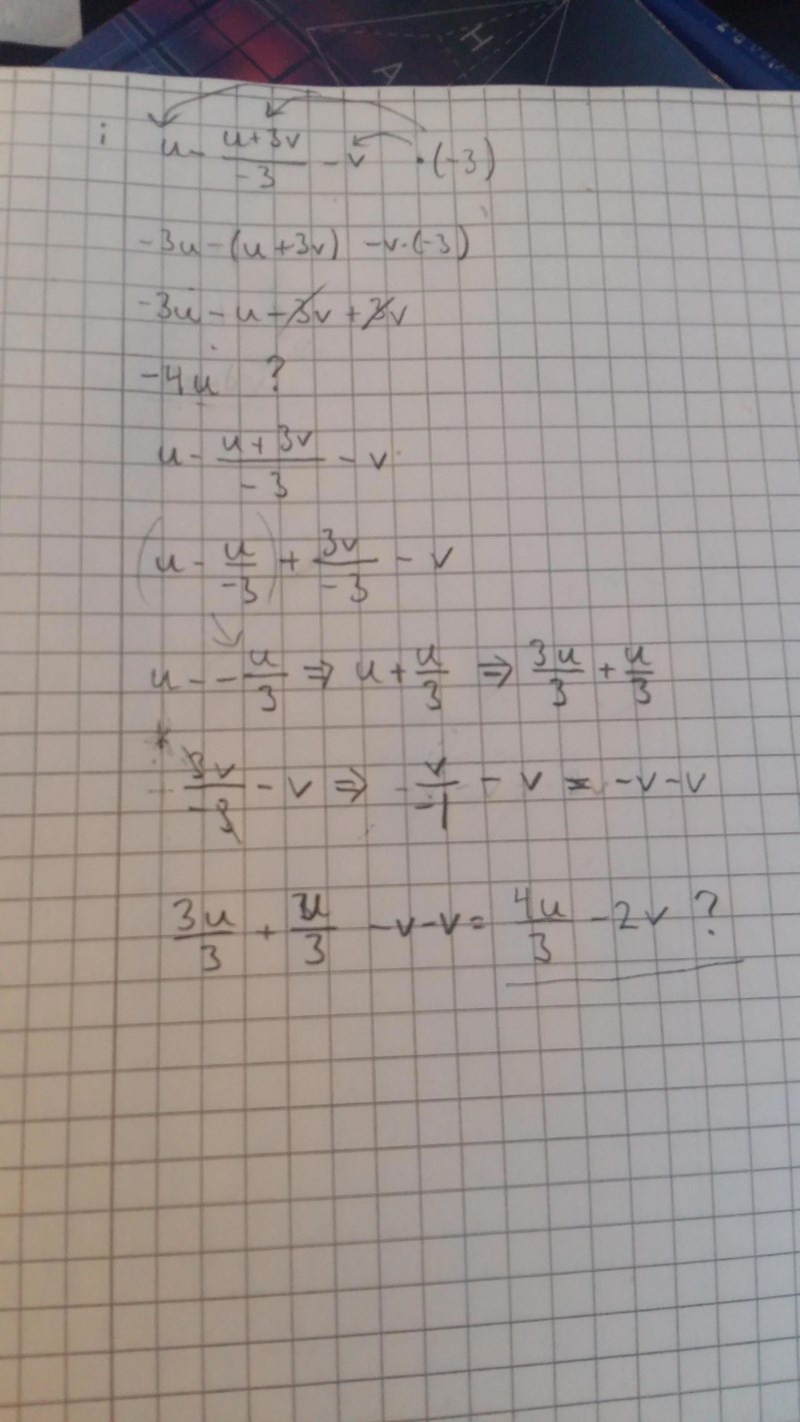 i u - \frac{u+3v}{-3} - v · (-3)
-3u - (u+3v) - v·(-3)
-3u - u - 3v + 3v
-4u ?
u - \frac{u+3v}{-3} - v
(u - \frac{u}{-3}) + \frac{3v}{-3} - v
u - - \frac{u}{3} ⇒ u + \frac{u}{3} ⇒ \frac{3u}{3} + \frac{u}{3}
\frac{3v}{-3} - v ⇒ \frac{v}{-1} - v = -v-v
\frac{3u}{3} + \frac{u}{3} - v - v = \frac{4u}{3} - 2v ?